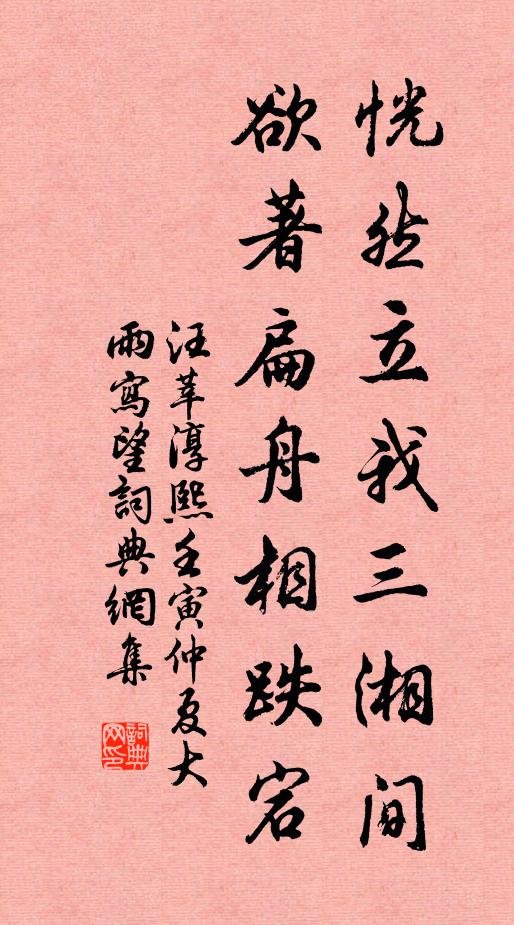 恍然立我三湘间
欲著扁舟相跌宕
汪莘淳熙壬寅仲夏大
雨寫望詞典網集
詞典网印